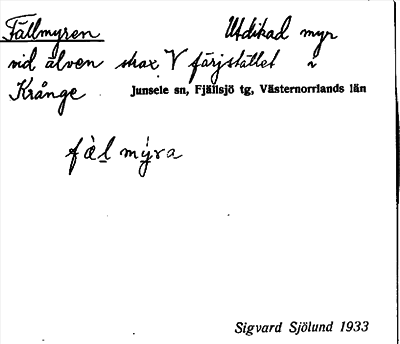 Fällmyren Utdikad myr
vid älven strax V färjstället i
Krånge Junsele sn, Fjällsjö tg, Västernorrlands län
fä̀l mýra
Sigvard Sjölund 1933